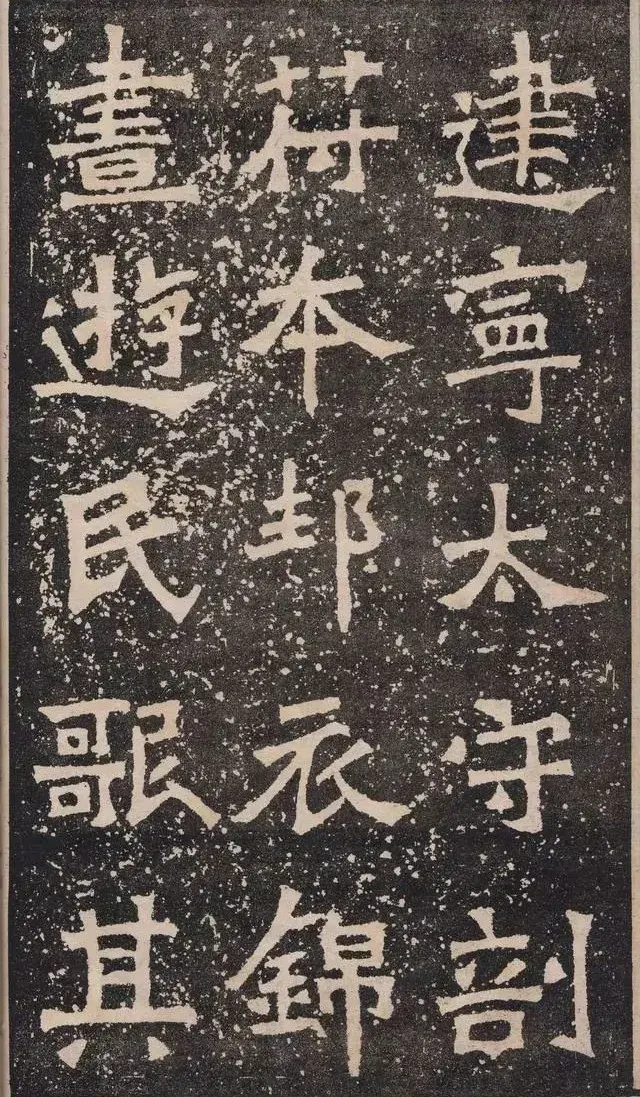 建寧太守剖
符本邦衣錦
晝遊民歌其